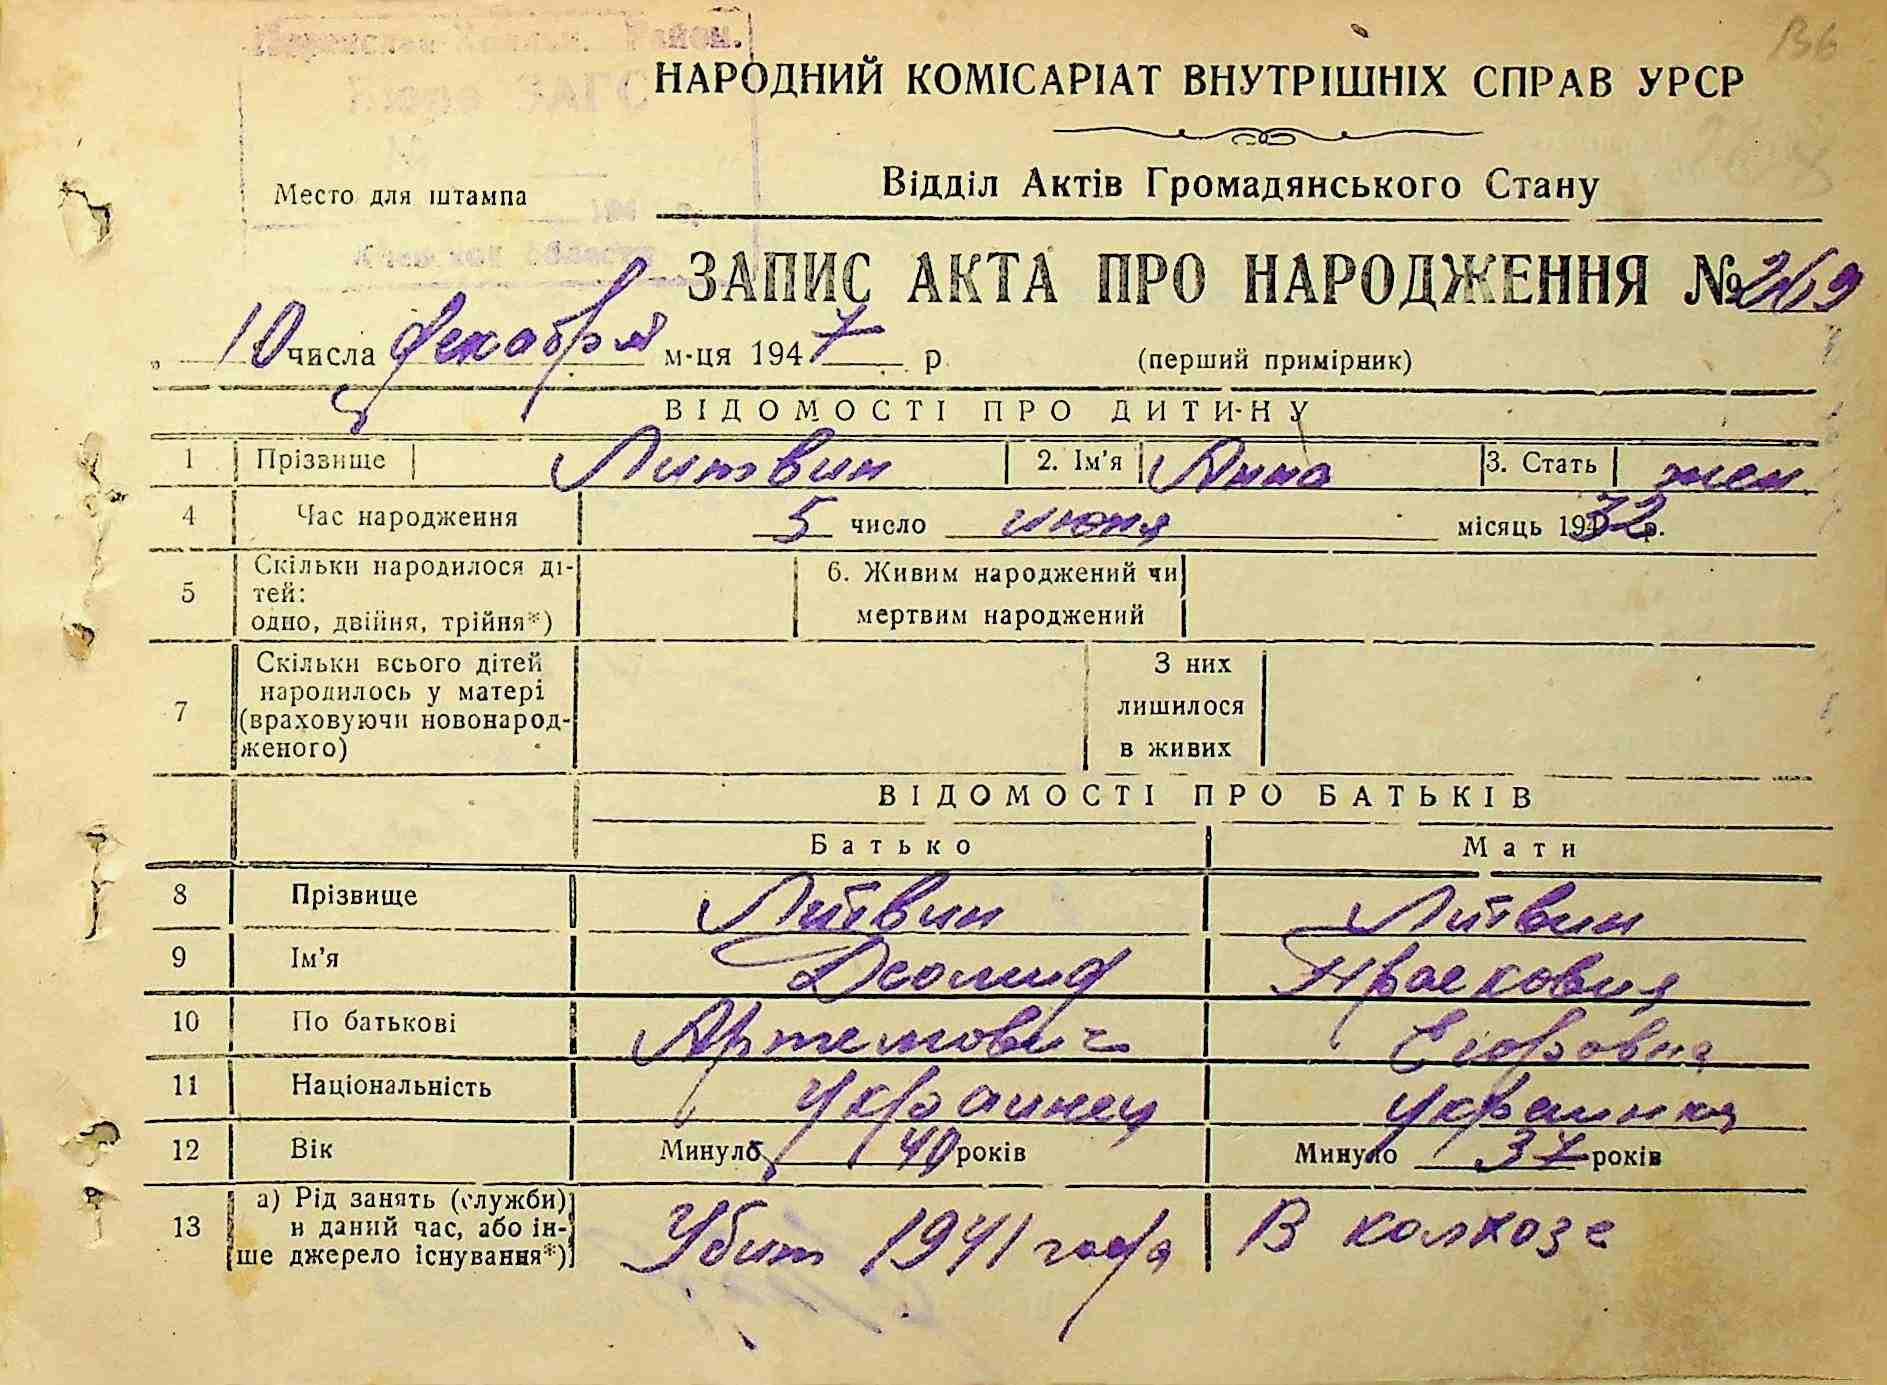 Район.
Бюро ЗАГС
НАРОДНИЙ КОМІСАРІАТ ВНУТРІШНІХ СПРАВ УРСР
Відділ Актів Громадянського Стану
Место для штампа
области
ЗАПИС АКТА ПРО НАРОДЖЕННЯ № 269
„ 10 числа декабря м-ця 1947 р. (перший примірник)
ВІДОМОСТІ ПРО ДИТИНУ
1 Прізвище Литвин 2. Ім'я Анна 3. Стать жен.
4 Час народження 5 число июня місяць 1932 р.
5 Скільки народилося ді-
тей:
одно, двійня, трійня*) 6. Живим народжений чи
мертвим народжений
7 Скільки всього дітей
народилось у матері
(враховуючи новонарод-
женого) З них
лишилося
в живих
ВІДОМОСТІ ПРО БАТЬКІВ
Батько Мати
8 Прізвище Литвин Литвин
9 Ім'я Деомид Прасковия
10 По батькові Артемович Егоровна
11 Національність украинец украинка
12 Вік Минуло 40 років Минуло 37 років
13 а) Рід занять (служби)
в даний час, або ін-
ше джерело існування*) Убит 1941 года В колхозе